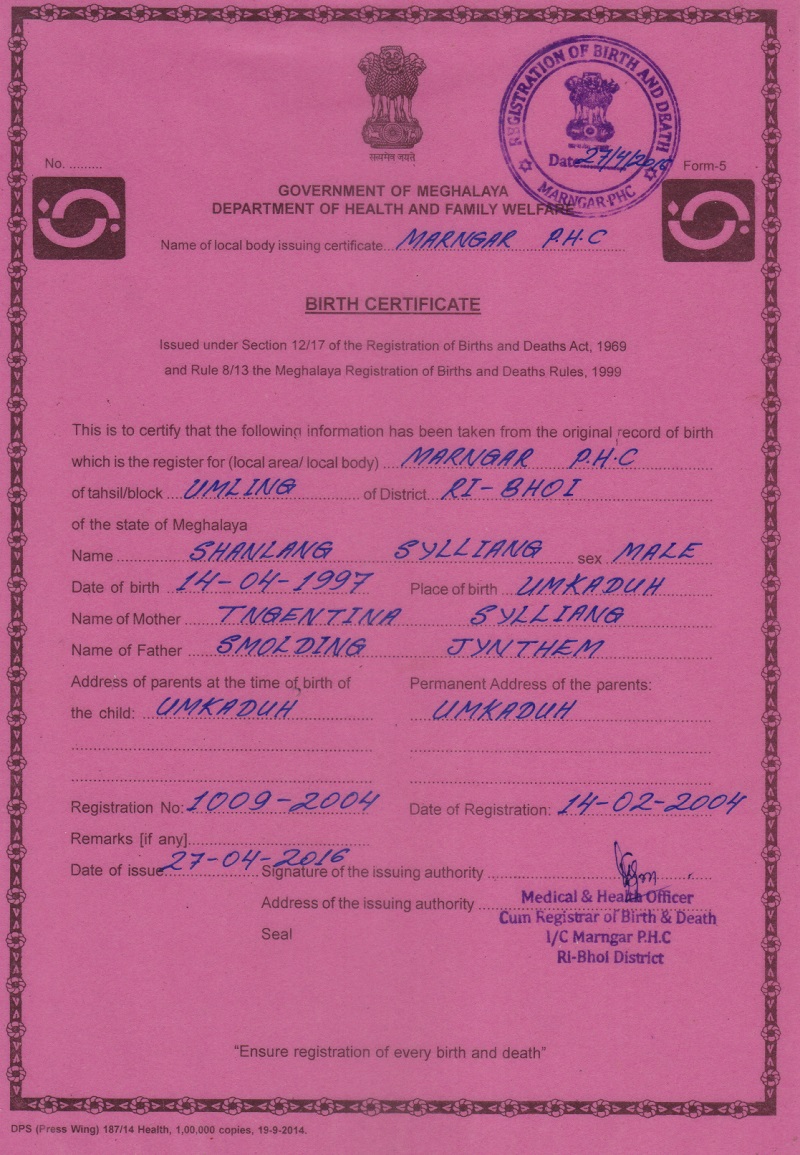 REGISTRATION OF BIRTH AND DEATH
Date 27/4/2016
MARNGAR PHC
सत्यमेव जयते
No. ..........
Form-5
GOVERNMENT OF MEGHALAYA
DEPARTMENT OF HEALTH AND FAMILY WELFARE
Name of local body issuing certificate... MARNGAR P.H.C
BIRTH CERTIFICATE
Issued under Section 12/17 of the Registration of Births and Deaths Act, 1969
and Rule 8/13 the Meghalaya Registration of Births and Deaths Rules, 1999
This is to certify that the following information has been taken from the original record of birth
which is the register for (local area/ local body) MARNGAR P.H.C
of tahsil/block UMLING of District RI-BHOI
of the state of Meghalaya
Name SHANLANG SYLLIANG sex MALE
Date of birth 14-04-1997 Place of birth UMKADUH
Name of Mother TNGENTINA SYLLIANG
Name of Father SMOLDING JYNTHEM
Address of parents at the time of birth of Permanent Address of the parents:
the child: UMKADUH UMKADUH
Registration No: 1009-2004 Date of Registration: 14-02-2004
Remarks [if any]
Date of issue 27-04-2016 Signature of the issuing authority
Address of the issuing authority
Seal
Medical & Health Officer
Cum Registrar of Birth & Death
I/C Marngar P.H.C
Ri-Bhoi District
“Ensure registration of every birth and death”
DPS (Press Wing) 187/14 Health, 1,00,000 copies, 19-9-2014.